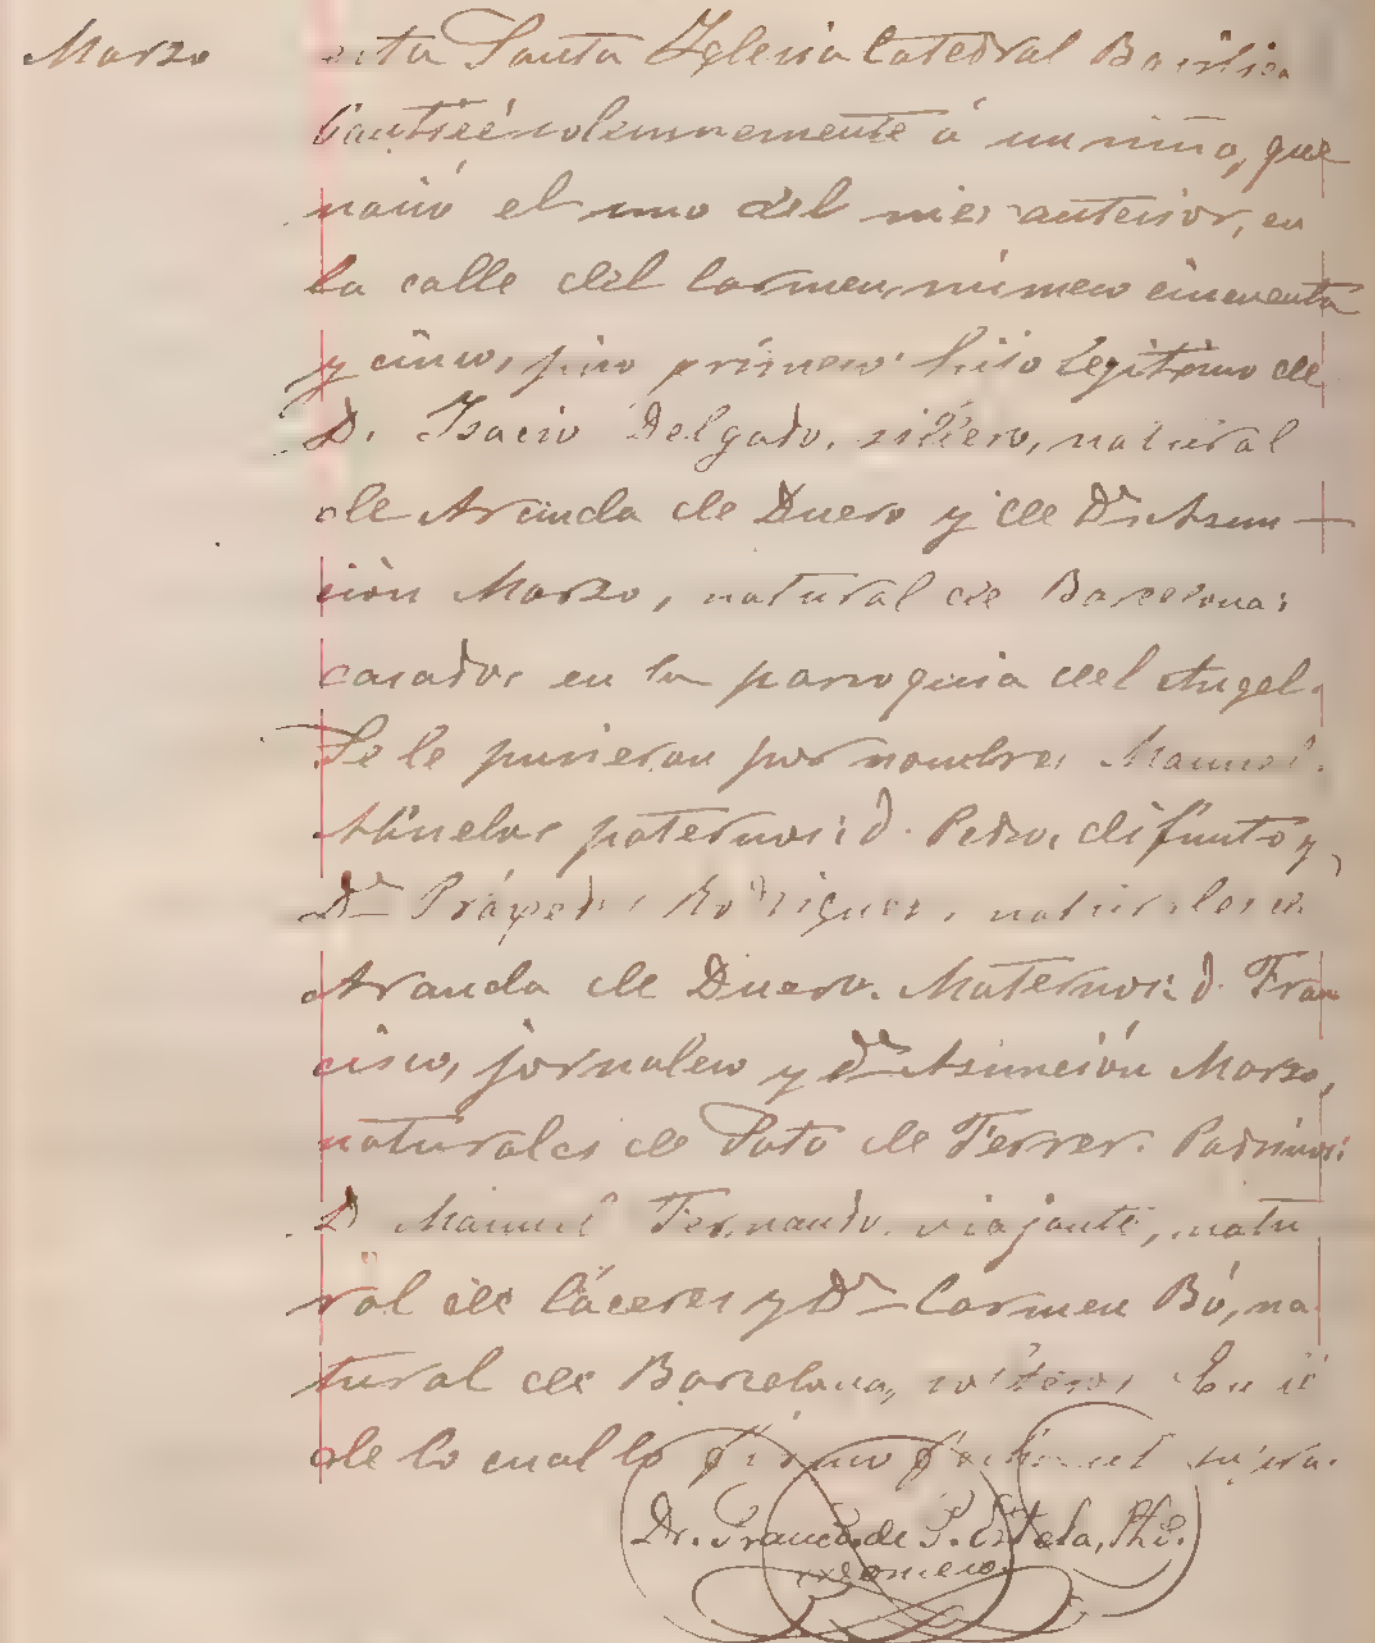 Marzo
esta Santa Iglesia Catedral Basilica
bauticé solemnemente á un niño, que
nació el uno del mes anterior, en
la calle del Carmen, número cincuenta
y cinco, piso primero: hijo legítimo de
D. Isacio Delgado, sillero, natural
de Aranda de Duero y de Dª Asun
ción Marzo, natural de Barcelona;
casados en la parroquia del Angel.
Se le pusieron por nombres Manuel.
Abuelos paternos: d. Pedro, difunto y
Dª Práxedes Rodríguez, naturales de
Aranda de Duero. Maternos: d. Fran
cisco, jornalero y dª Asunción Marzo,
naturales de Soto de Ferrer. Padrinos:
D Manuel Fernando, viajante, natu
ral de Cáceres y Dª Carmen Bó, na
tural de Barcelona, solteros. En fé
de lo cual lo firmo fecha ut supra.
Dr. Francº de P. Estela, Pbº.